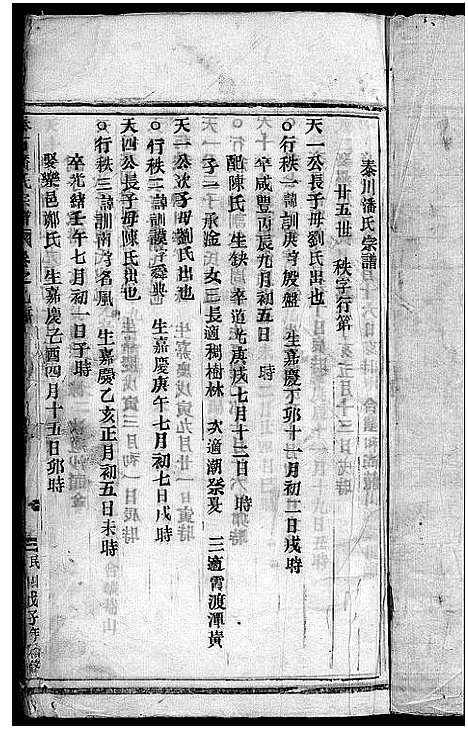 秦川潘氏宗譜
廿五世 秩字行第
天一公長子母劉氏出也
行秩一諱訓庚字殷盤 生嘉慶丁卯十一月初二日戌時
卒咸豐丙辰九月初五日 時
配陳氏 生缺 卒道光庚戌七月十二日 時
子二 子承 女三長適稠樹林 次適潮 三適霄渡潭黃
天一公次子母劉氏出也
行秩二諱訓謨字堯典 生嘉慶庚午七月初七日戌時
天四公長子母陳氏出也
行秩三諱訓南字名風 生嘉慶乙亥正月初五日未時
卒光緒壬午七月初一日子時
娶樂邑鄭氏 生嘉慶乙酉四月十五日卯時
民國戊子年